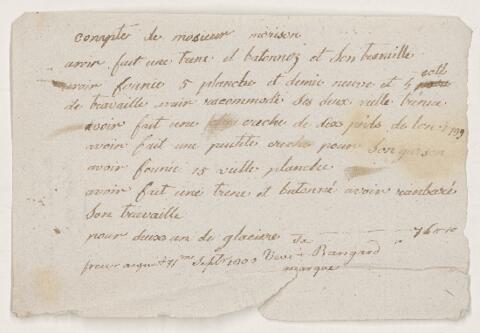 Compte de mosieur morison
avoir fait une trene et batonnez et son travaille
avoir fournie 5 planche et demie neuve et 4 coté
de travaille avair racommodé ses deux vielle trenne
avoir fait une creche de dix pieds de lon
avoir fait une petitte creche pour son
avoir fournie 15 vielle planche
avoir fait une trene et batonné avoir rambaré
son travaille
pour deux an de glaciere
pour aquit 11me Septbr Veve Bangard
marque